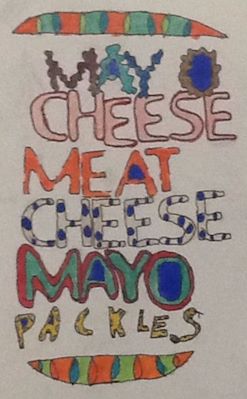 MAYO
CHEESE
MEAT
CHEESE
MAYO
PACKLES